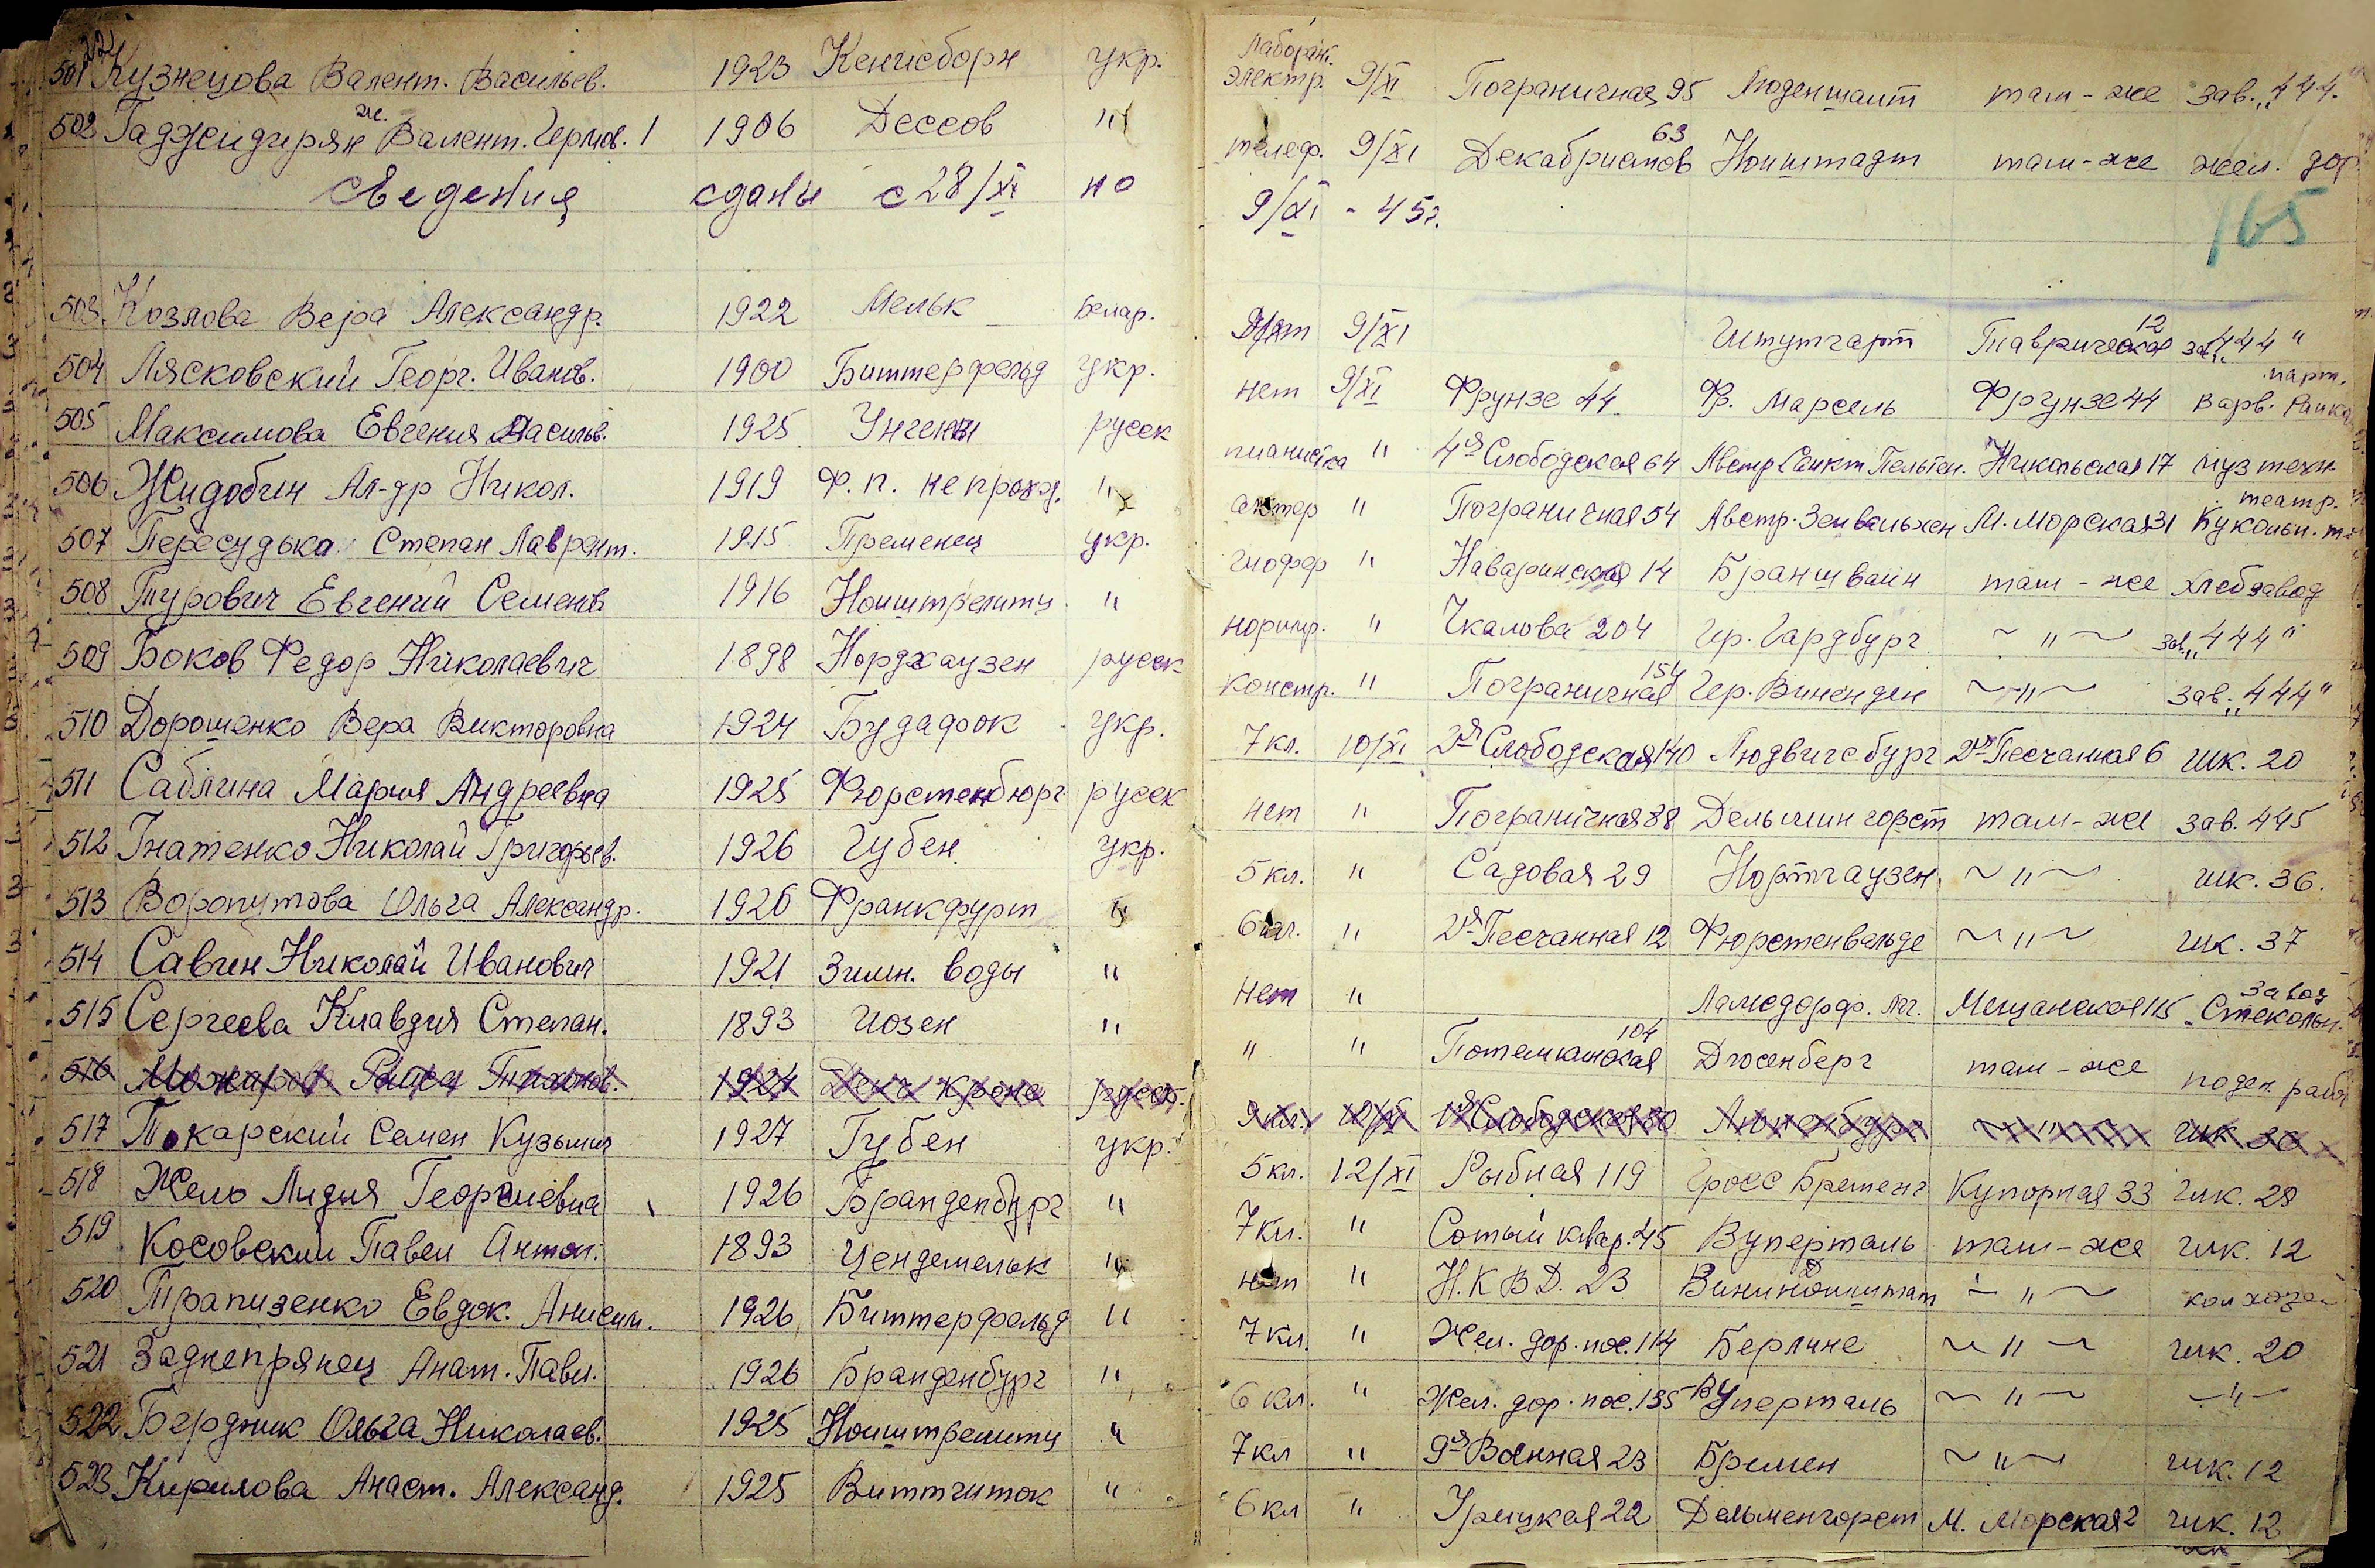 501 Кузнецова Валент. Васильев. 1923 Кенигсборн укр. лаборант. электр. 9/XI Пограничная 95 Люденшаит там-же зав. "444"
502 Валент. 1906 Дессов " телеф. 9/XI Декабристов 63 Ноиштадт там-же жел. дор.
Сведения сданы с 28/XI по 9/XI - 45г.
165
503 Козлова Вера Александр. 1922 Мельк белар. 9/XI Штутгарт Таврическая 12 зав. "444"
504 Лясковский Георг. Иванов. 1900 Биттерфельд укр. нет 9/XI Фрунзе 44 Фр. Марсель Фрунзе 44 парт. Варв. Райка
505 Максимова Евгения Васильв. 1925 Унгены русск пианистка " 4я Слободская 64 Австр Санкт Пельтен. Никольская 17 муз техн
506 Жидобин Ал-др Никол. 1919 Ф.п. не проход. " актер " Пограничная 54 Австр. Зенвальхен М. Морская 31 театр. Кукольн.
507 Пересудька Степан Лаврент. 1915 Пременец укр. шофер " Наваринская 14 Браншваин там-же хлебзавод
508 Турович Евгений Семенов 1916 Ноиштрелитц " нормир. " Чкалова 204 Гер. Гардбург ~ " ~ зав. "444"
509 Боков Федор Николаевич 1898 Нордхаузен русск констр. " Пограничная 154 Гер. Виненден ~ " ~ зав. "444"
510 Дорошенко Вера Викторовна 1924 Будафок укр. 7 кл. 10/XI 2я Слободская 140 Людвигсбург 2я Песчанная 6 шк. 20
511 Саблина Мария Андреевна 1925 Фюрстенбюрг русск нет " Пограничная 88 Дельмингорст там-же зав. 445
512 Гнатенко Николай Григорьев. 1926 Губен укр. 5 кл. " Садовая 29 Нортгаузен ~ " ~ шк. 36.
513 Воропутова Ольга Александр. 1926 Франкфурт " 6 кл. " 2я Песчанная 12 Фюрстенвальде ~ " ~ шк. 37
514 Савин Николай Иванович 1921 Зимн. воды " нет " Ламсдорф. Лаг. Мещанская 115 завод "Стекольн.
515 Сергеева Клавдия Степан. 1893 Иозен " " " Потемкинская 104 Дюсенберг там-же поден. рабо
516 1924 русск. 9 кл. 10/XI 1я Слободская 80 ~ " ~ шк 36
517 Токарский Семен Кузьмич 1927 Губен укр. 5 кл. 12/XI Рыбная 119 Гросс Бременг Купорная 33 шк. 28
518 Жело Лидия Георгиевна 1926 Бранденбург " 7 кл. " Сотый квар. 45 Вуперталь там-же шк. 12
519 Косовский Павел Антон. 1893 Цендемельк " нет " Н.К.В.Д. 23 ~ " ~ колхозе
520 Трапизенко Евдок. Анисим. 1926 Биттерфельд " 7 кл. " Жел. дор. пос. 114 Берлине ~ " ~ шк. 20
521 Заднепрянец Анат. Павл. 1926 Бранденбург " 6 кл. " Жел. дор. пос. 135 Вуперталь ~ " ~ ~ " ~
522 Бердник Ольга Николаев. 1925 Ноиштрелитц " 7 кл " 9я Военная 23 Бремен ~ " ~ шк. 12
523 Кирилова Анаст. Александ. 1925 Виттгиток " 6 кл " Урицкая 22 Дельменгорст М. Морская 2 шк. 12